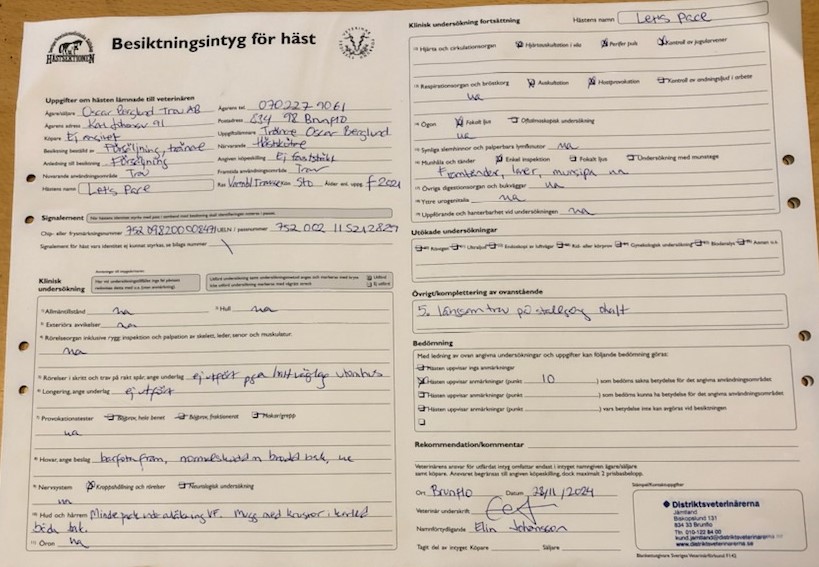 HÄSTSEKTIONEN
Besiktningsintyg för häst
Uppgifter om hästen lämnade till veterinären
Ägare/säljare Oscar Berglund Trav AB
Ägarens tel 070 227 9061
Ägarens adress 91
Postadress 834 98 Brunflo
Köpare Ej angivet
Uppgiftslämnare Tränare Oscar Berglund
Besiktning beställd av Försäljning, tränare
Närvarande Hästskötare
Anledning till besiktning Försäljning
Angiven köpeskilling Ej fastställt
Nuvarande användningsområde Trav
Framtida användningsområde Trav
Hästens namn Let's Pace
Ras Varmblod Travare Kön Sto Ålder enl. uppg. f 2021
Signalement
Chip- eller frysmärkningsnummer 752098200008471 UELN / passnummer 752 002 115212829
Signalement för häst vars identitet ej kunnat styrkas, se bilaga nummer
Klinisk undersökning
Utförd
Ej utförd
1) Allmäntillstånd ua
2) Hull ua
3) Exteriöra avvikelser ua
4) Rörelseorgan inklusive rygg: inspektion och palpation av skelett, leder, senor och muskulatur.
ua
5) Rörelser i skritt och trav på rakt spår, ange underlag ej utfört pga
6) Longering, ange underlag ej utfört
7) Provokationstester Böjprov, hela benet Böjprov, fraktionerat Makar/grepp
ua
8) Hovar, ange beslag barfota fram, normalskodd m brodd bak, ua
9) Nervsystem Kroppshållning och rörelser Neurologisk undersökning
ua
10) Hud och hårrem VF. Mugg med krustor i karled
båda bak.
11) Öron ua
Klinisk undersökning fortsättning
Hästens namn Let's Pace
12) Hjärta och cirkulationsorgan Hjärtauskultation i vila Perifer puls Kontroll av jugularvener
13) Respirationsorgan och bröstkorg Auskultation Hostprovokation Kontroll av andningsljud i arbete
ua
14) Ögon Fokalt ljus Oftalmoskopisk undersökning
ua
15) Synliga slemhinnor och palperbara lymfknutor ua
16) Munhåla och tänder Enkel inspektion Fokalt ljus Undersökning med munstege
Framtänder, laner, mungipa ua
17) Övriga digestionsorgan och bukväggar ua
18) Yttre urogenitalia ua
19) Uppförande och hanterbarhet vid undersökningen ua
Utökade undersökningar
Röntgen Ultraljud Endoskopi av luftvägar Gynekologisk undersökning Blodanalys Annan
Övrigt/komplettering av ovanstående
5. Långsam trav på stallgång ohalt
Bedömning
Med ledning av ovan angivna undersökningar och uppgifter kan följande bedömning göras:
Hästen uppvisar inga anmärkningar
Hästen uppvisar anmärkningar (punkt 10 ) som bedöms sakna betydelse för det angivna användningsområdet
Hästen uppvisar anmärkningar (punkt ) som bedöms kunna ha betydelse för det angivna användningsområdet
Hästen uppvisar anmärkningar (punkt ) vars betydelse inte kan avgöras vid besiktningen
Rekommendation/kommentar
Veterinärens ansvar för utfärdat intyg omfattar endast i intyget namngiven ägare/säljare
samt köpare. Ansvaret begränsas till angiven köpeskilling, dock maximalt 2 prisbasbelopp.
Ort Brunflo Datum 28/11/2024
Veterinär underskrift
Namnförtydligande Elin Johansson
Tagit del av intyget: Köpare Säljare
Stämpel/Kontaktuppgifter
Distriktsveterinärerna
Jämtland
Biskopslund 131
834 33 Brunflo
Tfn: 010-122 84 00
kund.jamtland@distriktsveterinarerna
www.distriktsveterinarerna.se
Blankettutgivare Sveriges Veterinärförbund